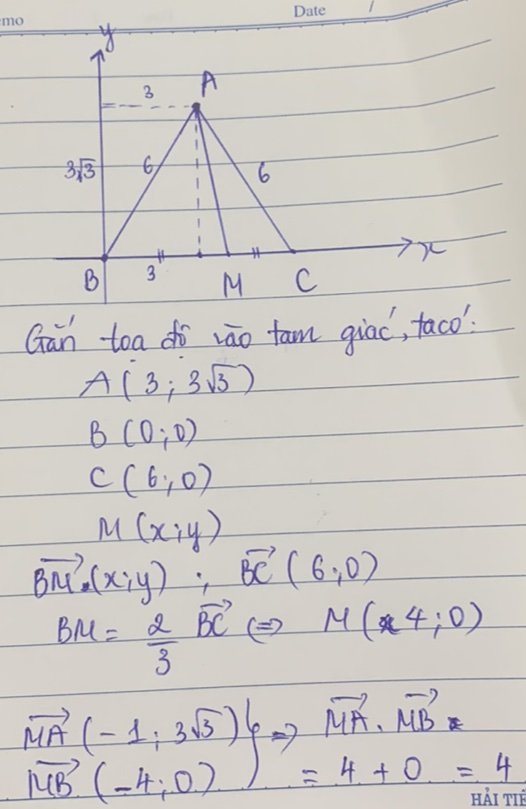 emo
Date /
y
A
3
3√3
6
6
x
B
3
M
C
Gắn toạ độ vào tam giác, ta có:
A (3; 3√3)
B (0; 0)
C (6; 0)
M (x; y)
BM→ (x; y) ; BC→ (6; 0)
BM = 2/3 BC→ ⇔ M (4; 0)
MA→ (-1; 3√3) } ⇒ MA→ . MB→
MB→ (-4; 0) } = 4 + 0 = 4
HẢI TIẾ